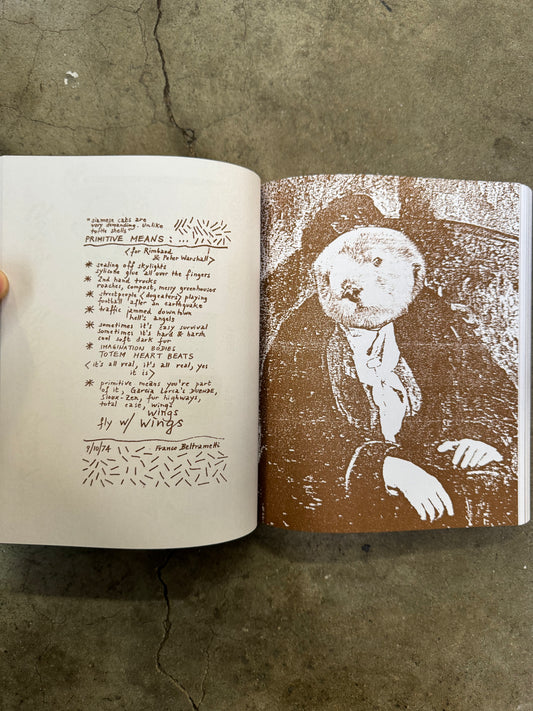 "siamese cats are
very demanding. Unlike
turtle shells"
PRIMITIVE MEANS : ...
<for Rimbaud
& Peter Marshall>
* sealing off skylights
sylicone glue all over the fingers
* 2nd hand trucks
roaches, compost, messy greenhouses
* streetpeople <dogeaters> playing
football after an earthquake
* traffic jammed downtown
hell's angels
* sometimes it's easy survival
sometimes it's hard & harsh
cool soft dark fur
* IMAGINATION BODIES
TOTEM HEART BEATS
<it's all real, it's all real, yes
it is>
* primitive means you're part
of it, Garcia Lorca's DUENDE,
Sioux-Zen, fur highways,
total ease, wings
wings
fly w/ wings
9/10/74 Franco Beltrametti